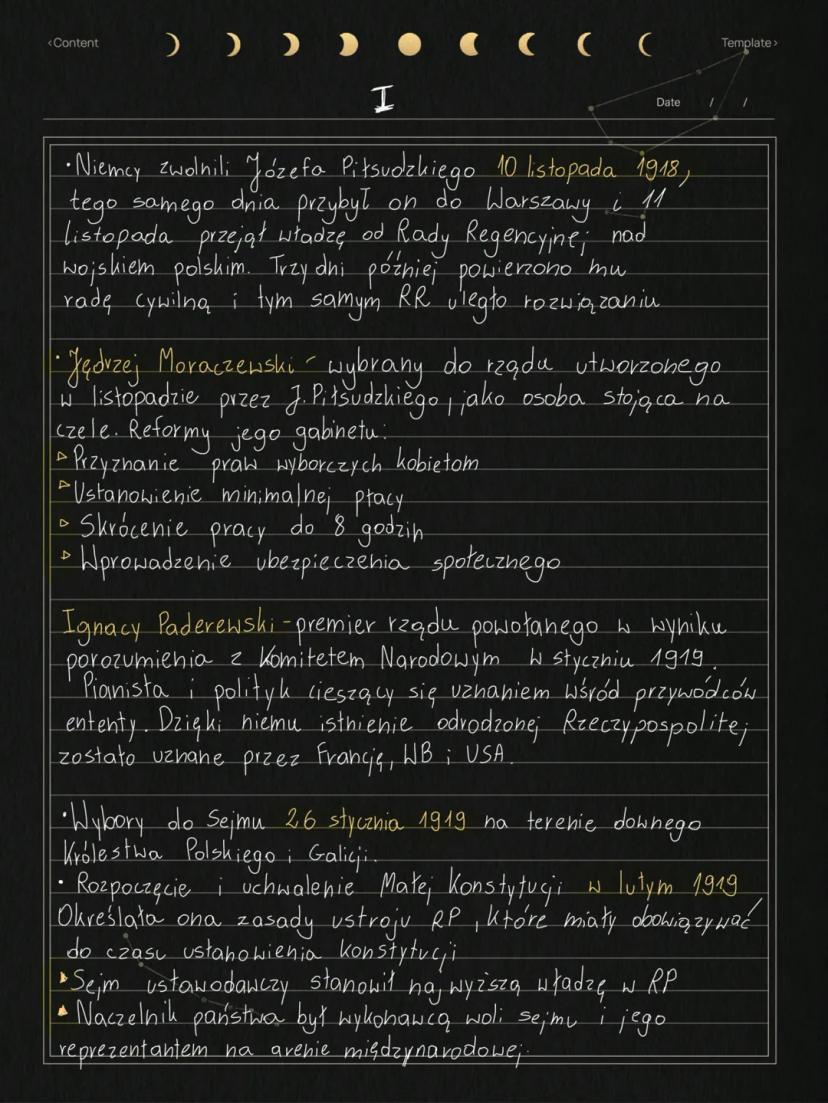 ‹Content
Template›
I
Date / /
•Niemcy zwolnili Józefa Piłsudzkiego 10 listopada 1918,
tego samego dnia przybył on do Warszawy i 11
listopada przejął władzę od Rady Regencyjnej nad
wojskiem polskim. Trzy dni później powierzono mu
radę cywilną i tym samym RR uległo rozwiązaniu
•Jędrzej Moraczewski - wybrany do rządu utworzonego
w listopadzie przez J. Piłsudzkiego, jako osoba stojąca na
czele. Reformy jego gabinetu:
▹Przyznanie praw wyborczych kobietom
▹Ustanowienie minimalnej płacy
▹ Skrócenie pracy do 8 godzin
▹ Wprowadzenie ubezpieczenia społecznego
Ignacy Paderewski - premier rządu powołanego w wyniku
porozumienia z Komitetem Narodowym w styczniu 1919.
Pianista i polityk cieszący się uznaniem wśród przywódców
ententy. Dzięki niemu istnienie odrodzonej Rzeczypospolitej
zostało uznane przez Francję, WB i USA.
•Wybory do Sejmu 26 stycznia 1919 na terenie downego
Królestwa Polskiego i Galicji.
• Rozpoczęcie i uchwalenie Małej Konstytucji w lutym 1919
Określała ona zasady ustroju RP, które miały obowiązywać
do czasu ustanowienia konstytucji
▸Sejm ustawodawczy stanowił najwyższą władzę w RP
▸ Naczelnik państwa był wykonawcą woli sejmu i jego
reprezentantem na arenie międzynarodowej.